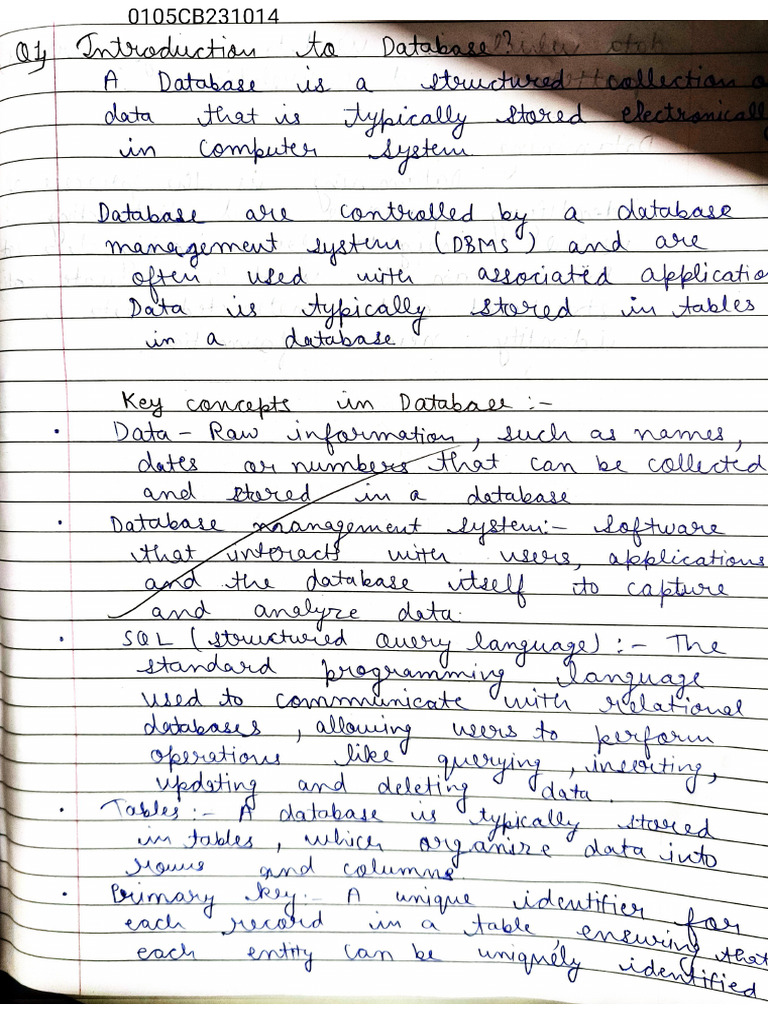 0105CB231014
Q1, Introduction to Database?
A Database is a structured collection o
data that is typically stored electronicall
in computer system
Database are controlled by a database
management system (DBMS) and are
often used with associated applicatio
Data is typically stored in tables
in a database
Key concepts in Database :-
• Data - Raw information, such as names,
dates or numbers that can be collected
and stored in a database
• Database management system:- Software
that interacts with users, applications
and the database itself to capture
and analyze data.
• SQL (structured Query language) :- The
standard programming language
used to communicate with relational
databases, allowing users to perform
operations like querying, inserting,
updating and deleting data.
• Tables:- A database is typically stored
in tables, which organize data into
rows and columns.
• Primary key:- A unique identifier for
each record in a table ensuring that
each entity can be uniquely identified